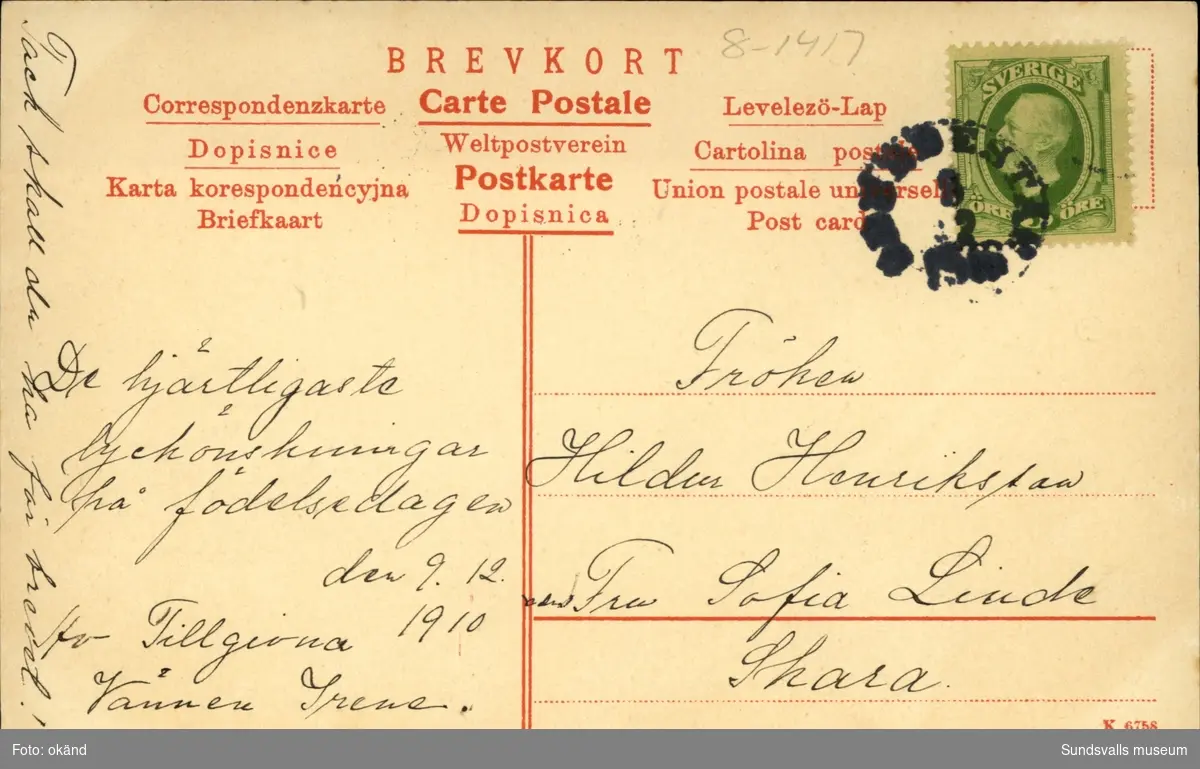 8-1417
BREVKORT
Correspondenzkarte
Carte Postale
Levelezö-Lap
Dopisnice
Weltpostverein
Cartolina postale
Karta korespondencyjna
Postkarte
Union postale universelle
Briefkaart
Dopisnica
Post card
SVERIGE
ÖRE ÖRE
Tack skall du ha för brevet!
De hjärtligaste
lyckönskningar
på födelsedagen
den 9. 12.
1910
Av Tillgivna
Vännen Irene.
Fröken
Hildur Henriksson
adrs Fru Sofia Linde
Skara.
K. 6758
Foto: okänd
Sundsvalls museum